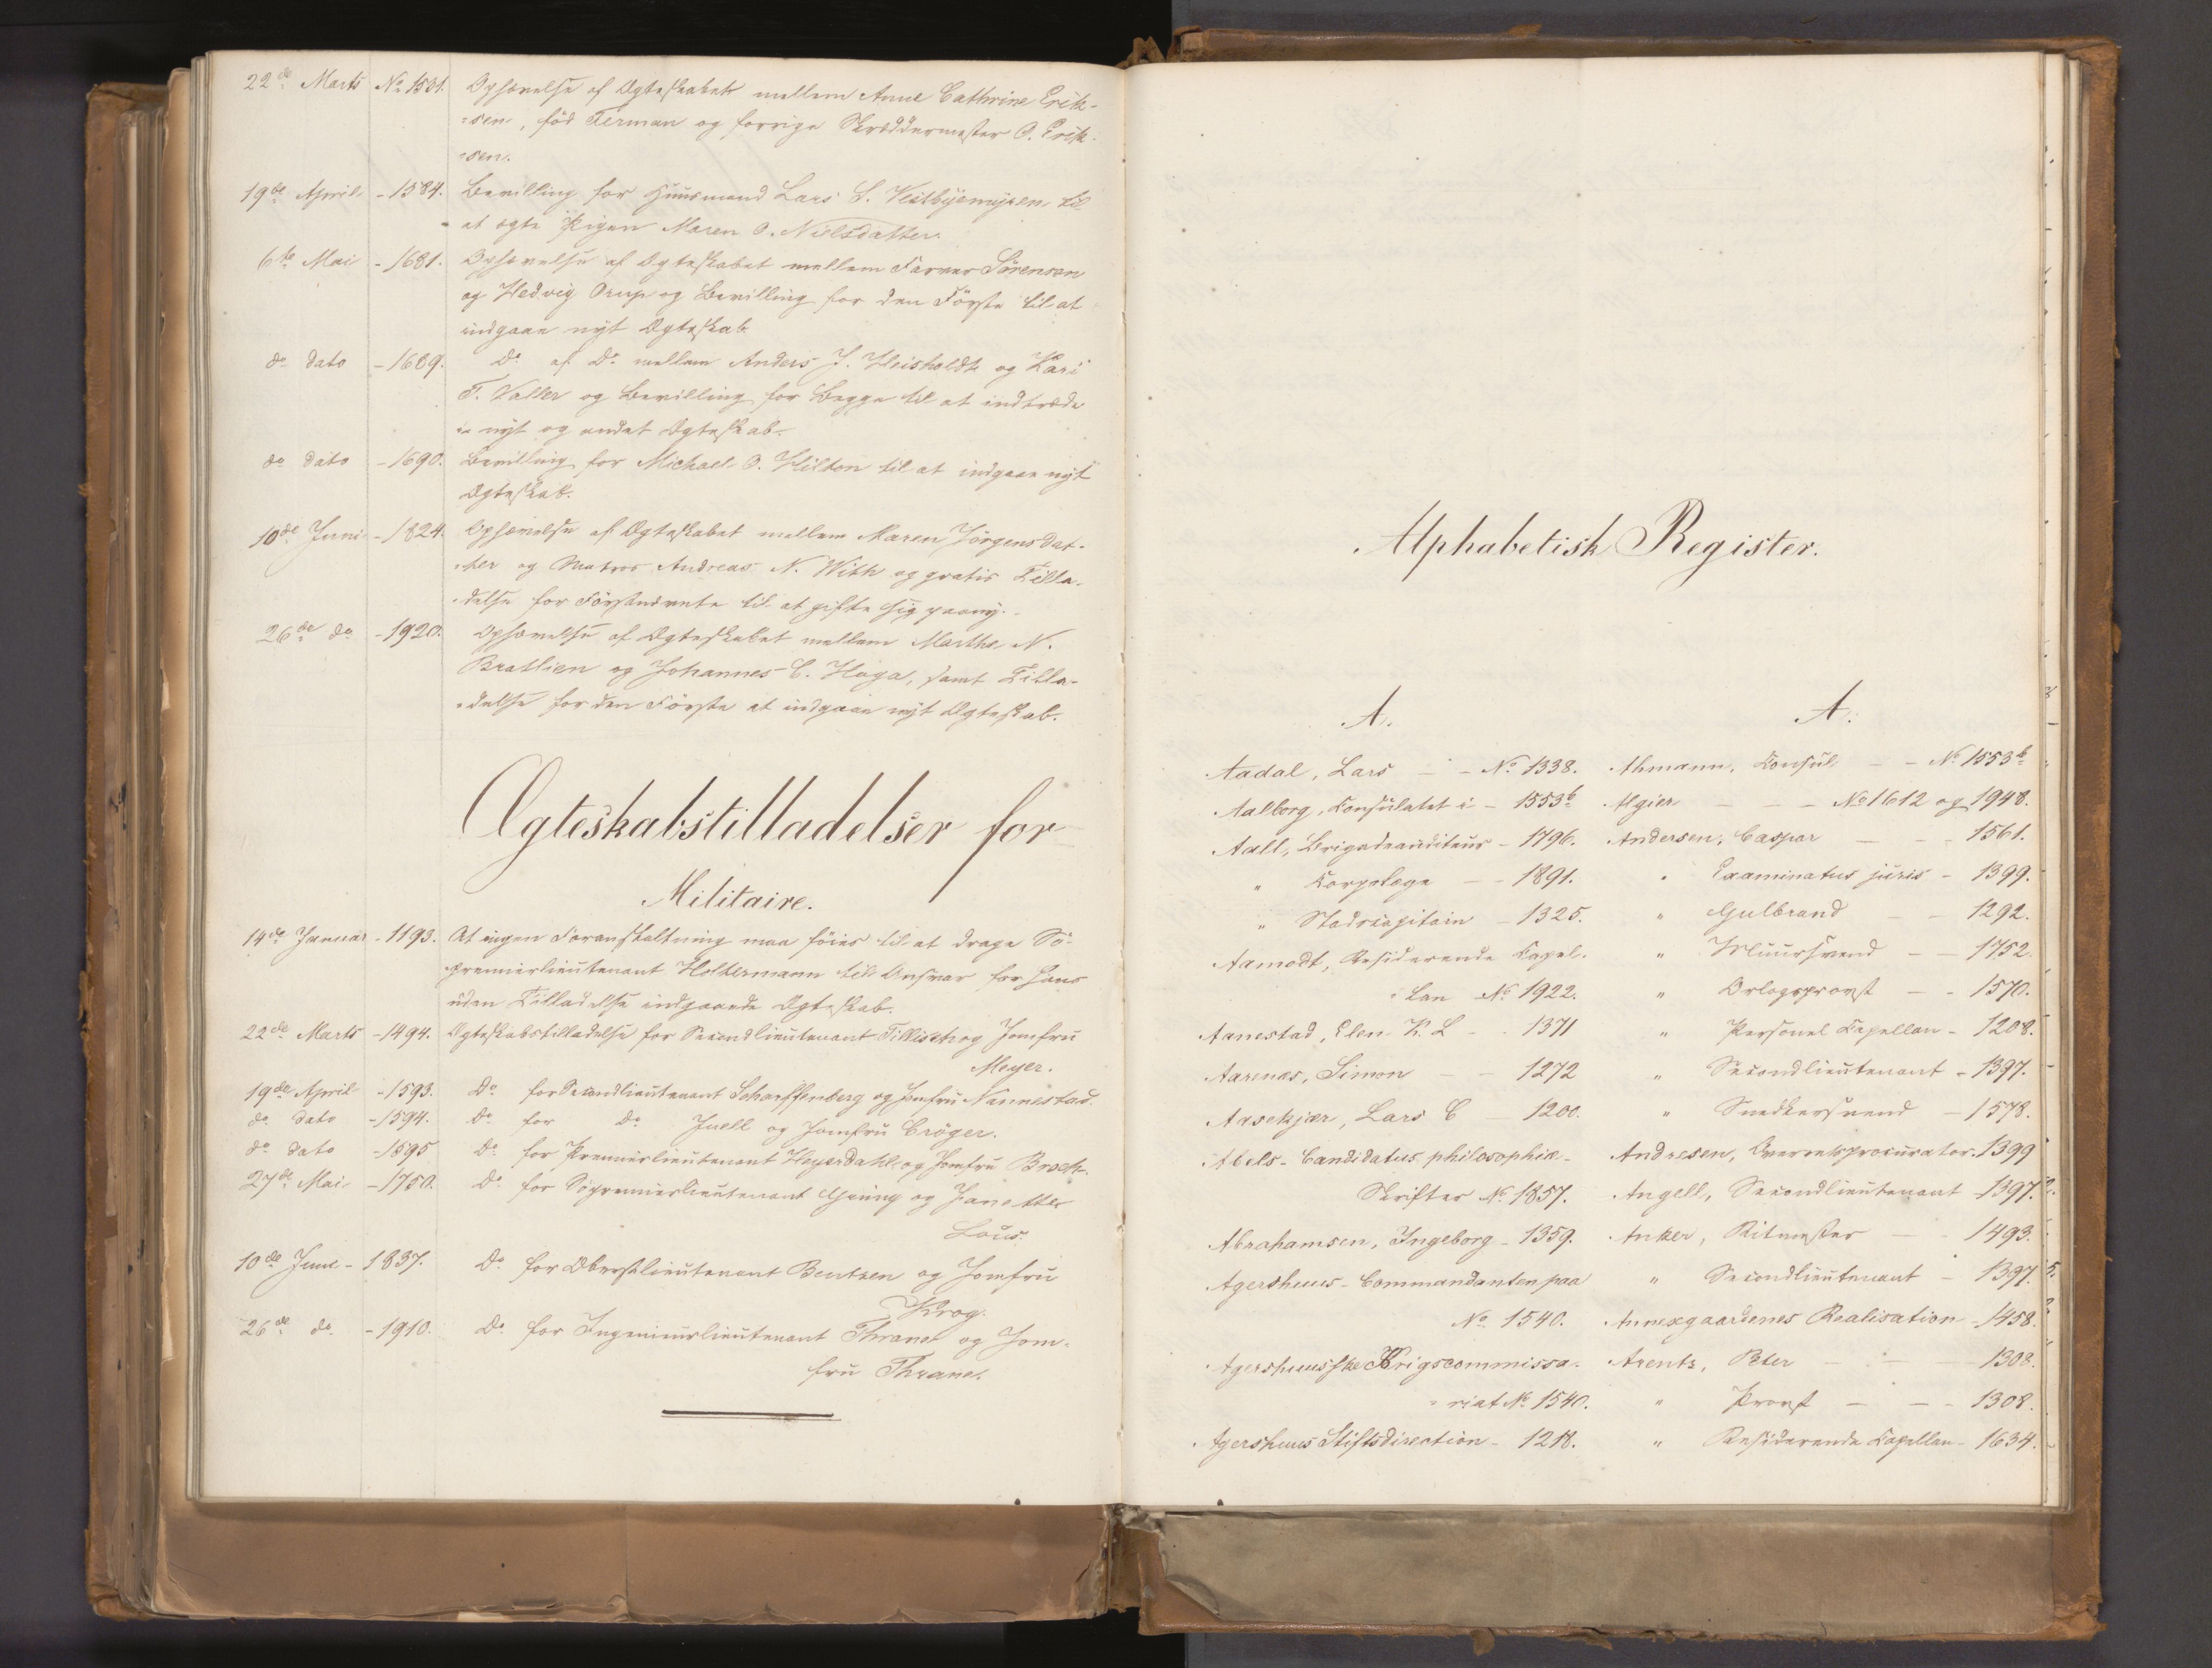 22de Marts No 1501. Ophævelse af Ægteskabet mellem Anne Cathrine Erik-
=sen, föd Ferman og forrige Skræddermester O. Erik-
=sen.
19de April - 1584. Bevilling for Huusmand Lars S. Vestbyemyren til
at ægte Pigen Maren O. Nielsdatter.
6te Mai - 1681. Ophævelse af Ægteskabet mellem Farver Sörensen
og Hedvig Orup og Bevilling for den Förste til at
indgaae nyt Ægteskab.
do dato - 1689. Do af Do mellem Anders J. Heisholdt og Kari
T. Valler og Bevilling for Begge til at indtræde
i nyt og andet Ægteskab.
do dato - 1690. Bevilling for Michael O. Hilton til at indgaae nyt
Ægteskab.
10de Juni - 1824. Ophævelse af Ægteskabet mellem Maren Jörgensdat-
=ter og Matros Andreas N. With og gratis Tilla-
=delse for Förstnævnte til at gifte sig paany.
26de do - 1920. Ophævelse af Ægteskabet mellem Marthe N.
Bratlien og Johannes C. Haga, samt Tilla-
=delse for den Förste at indgaae nyt Ægteskab.
Ægteskabstilladelser for
Militaire.
14de Januar - 1193. At ingen Foranstaltning maa föies til at drage Sö-
premierlieutenant Holtermann til Ansvar for hans
uden Tilladelse indgaaede Ægteskab.
22de Marts - 1494. Ægteskabstilladelse for Secondlieutenant Tillisch og Jomfru
Meyer.
19de April - 1593. Do for Secondlieutenant Scharffenberg og Jomfru Nannestad.
do dato - 1594. Do for Do Juell og Jomfru Cröger.
do dato - 1595 Do for Premierlieutenant Heyerdahl og Jomfru Broch.
27de Mai - 1750. Do for Söpremierlieutenant og Janette
Lous.
10de Juni - 1837. Do for Oberstlieutenant Bentzen og Jomfru
Krog.
26de do - 1910. Do for Ingenieurlieutenant Thrane og Jom-
fru Thrane.
Alphabetisk Register.
A.
Aadal, Lars - - No 1338.
Aalborg, Consulatet i - 1553b
Aall, Brigadeauditeur - 1796.
" Corpslæge - - 1891.
" Stadscapitain - 1325.
Aamodt, Residerende Capel-
=lan No 1922.
Aanestad, Elen K. L - - 1371
Aarenæs, Simon - - 1272
Aasekjær, Lars C - 1200.
Abels - Candidatus philosophiæ -
Skrifter No 1857.
Abrahamsen, Ingeborg - 1359.
Agershuus - Commandanten paa
No 1540.
Agershuusske Krigscommissa-
=riat No 1540.
Agershuus Stiftsdirection - 1218.
A.
Ahmann, Consul - - No 1553b
Algier - - - No 1612 og 1948.
Andersen, Caspar - - 1561.
" Examinatus juris - 1399.
" Gulbrand - - 1292.
" Muursvend - - 1752.
" Orlogsprovst - - 1570.
" Personel Capellan - 1208.
" Secondlieutenant - 1397.
" Snedkersvend - 1578.
Andresen, Overretsprocurator - 1399
Angell, Secondlieutenant - 1397.
Anker, Ritmester - - 1493.
" Secondlieutenant - 1397.
Annexgaardenes Realisation - 1458.
Arentz, Peter - - - 1308.
" Provst - - - 1308.
" Residerende Capellan - 1634.